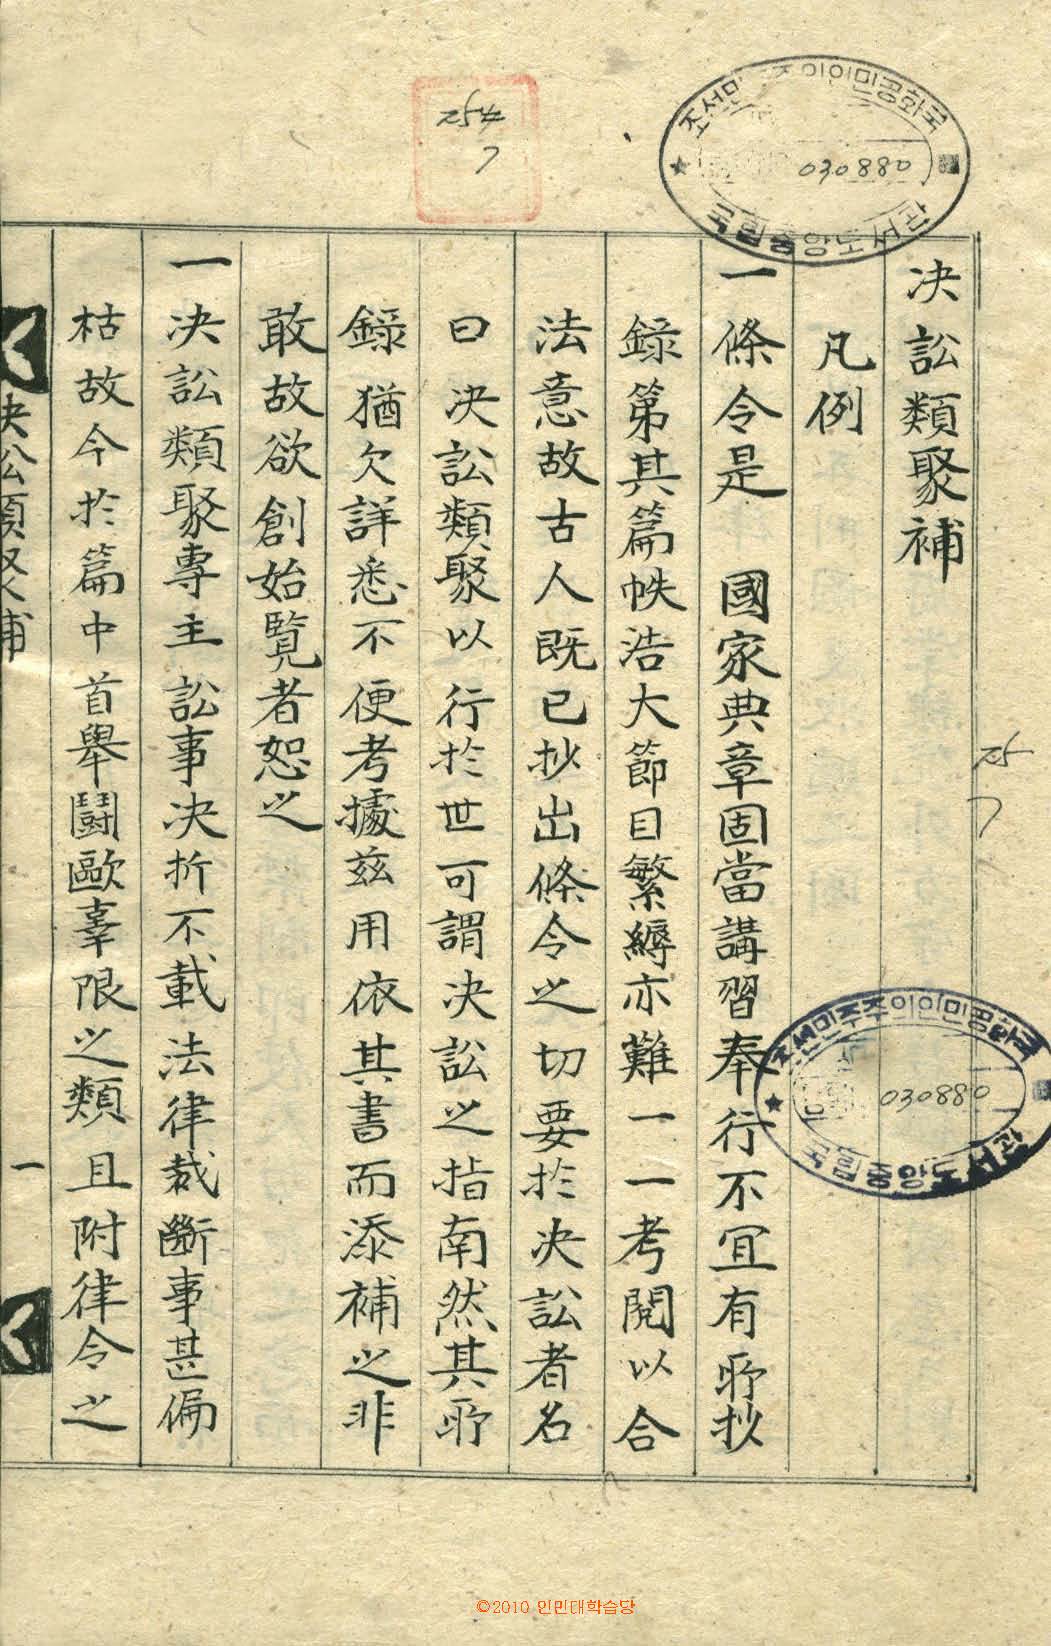 决訟類聚補
凡例
一條令是 國家典章固當講習奉行不冝有所抄
錄第其篇帙浩大節目繁縟亦難一一考閱以合
法意故古人既已抄出條令之切要於决訟者名
曰决訟類聚以行於世可謂决訟之指南然其所
錄猶欠詳悉不便考據玆用依其書而添補之非
敢故欲創始覽者恕之
一决訟類聚專主訟事决折不載法律裁斷事甚偏
枯故今於篇中首舉鬪毆辜限之類且附律令之
决訟類聚補
一
조선민주주의인민공화국
030880
국립중앙도서관
254
7
조선민주주의인민공화국
030880
국립중앙도서관
7
©2010 인민대학습당